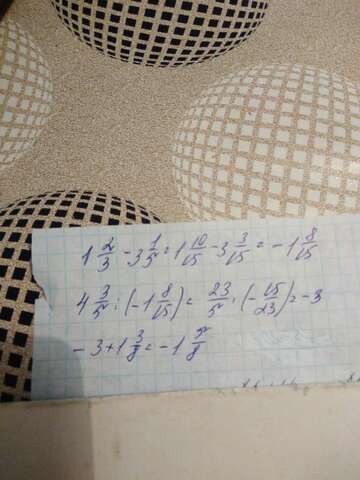 1 2/3 - 3 1/5 = 1 10/15 - 3 3/15 = -1 8/15
4 3/5 : (-1 8/15) = 23/5 · (-15/23) = -3
-3 + 1 3/8 = -1 5/8